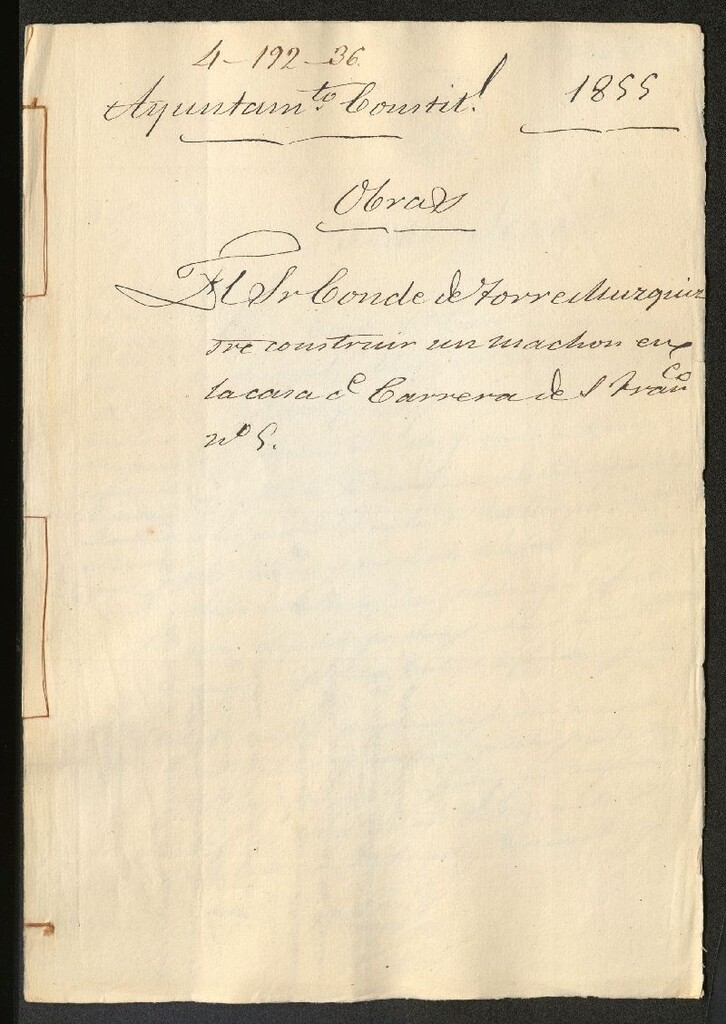 4-192-36
Ayuntam.to Constit.l 1855
Obras
El Sr Conde de Torre Muzquiz
sre construir un machon en
la casa C.e Carrera de S Fran.co
nº 5.